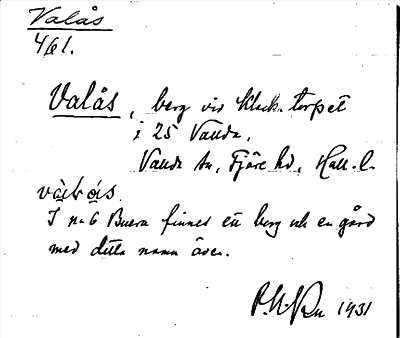 Valås
461.
Valås, berg vid Klock.torpet
i 25 Vallda,
Vallda sn, Fjäre hd, Hall. l.
I nr 6 Buera finnes ett berg och en gård
med detta namn även.
1931